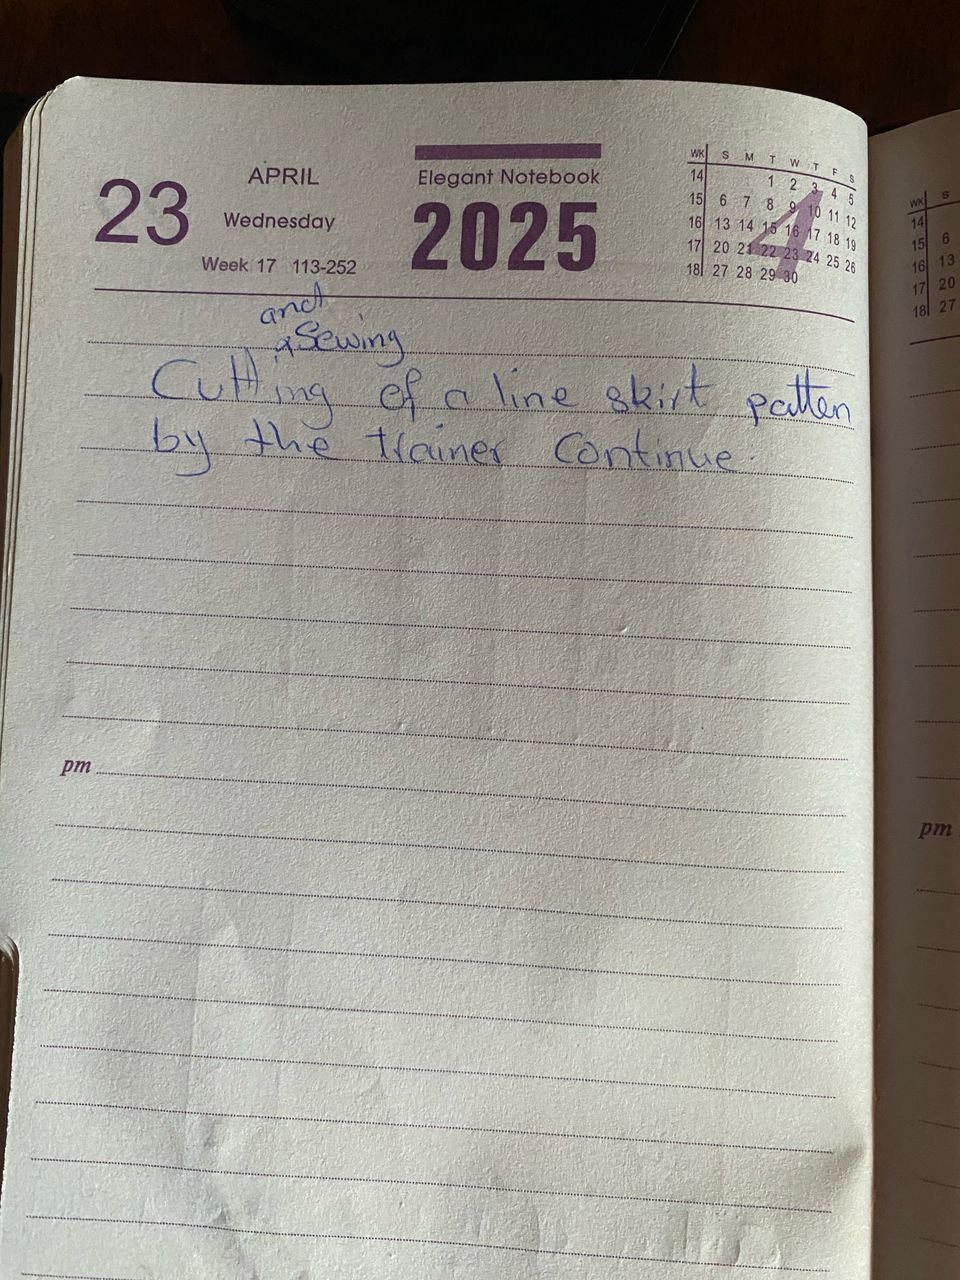 23
APRIL
Wednesday
Week 17 113-252
Elegant Notebook
2025
WK S M T W T F S
14 1 2 3 4 5
15 6 7 8 9 10 11 12
16 13 14 15 16 17 18 19
17 20 21 22 23 24 25 26
18 27 28 29 30
4
and
& Sewing
Cutting of a line skirt patten
by the trainer Continue.
pm
WK S
14
15 6
16 13
17 20
18 27
pm